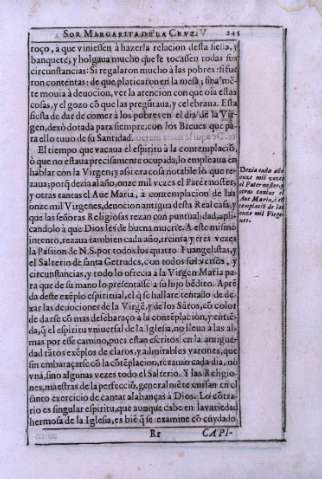 SOR MARGARITA DE LA CRUZ. 245
roço, a que viniessen à hazerla relacion desta fiesta, y
banquete, y holgaua mucho que le tocassen todas sus
circunstancias: Si regalaron mucho à las pobres: si fue
ron contentas: de que platicaron en la mesa, sin q̃ me
mouia à deuocion, ver la atencion con que oìa estas
cosas, y el gozo cõ que las pregũtaua, y celebraua. Esta
fiesta de dar de comer à los pobres en el dia de la Vir
gen, dexò dotada para siempre, con los Breues que pa
ra ello tuuo de su Santidad.
El tiempo que vacaua el espiritu à la contemplaciõ,
ò que no estaua precisamente ocupada, lo empleaua en
hablar con la Virgen; y assi era cosa notable lo que re
zaua; porq̃ dezia al año, onze mil vezes el Pater noster,
y otras tantas el Aue Maria, à contemplacion de las
onze mil Virgenes, deuocion antigua desta Real casa, y
que las señoras Religiosas rezan con puntualidad, apli-
candolo à que Dios les dè buena muerte. A este mismo
intento, rezaua tambien cada año, treinta y tres vezes
la Passion de N. S. por todos los quatro Euangelistas, y
el Salterio de santa Getrudes, con todos sus versos, y
circunstancias, y todo lo ofrecia à la Virgen Maria pa
ra que de su mano lo presentasse à su hijo bẽdito. Aprẽ
da deste exẽplo espiritual, el q̃ se hallare tentado de de-
xar las deuociones de la Virgẽ, y de los Sãtos, cõ color
de darse cõ mas desẽbaraço à la contẽplacion, y entiẽ-
da, q̃ el espiritu vniuersal de la Iglesia, no lleuo à las al-
mas por esse camino, pues estan escritos en la antigue-
dad tãtos exẽplos de claros, y admirables varones, que
sin embaraçarse cõ la cõtẽplacion, rezauan cada dia, no
vna, sino algunas vezes todo el Salterio. Y las Religio-
nes, maestras de la perfecciõ, generalmẽte vsassen en el
santo exercicio de cantar alabanças à Dios. Lo cõtra-
rio es singular espiritu, que aunque cabe en la variedad
hermosa de la Iglesia, es biẽ q̃ se examine cõ cuydado.
Rr CAPI-
Dezia cada año
onze mil vezes
el Pater noster, y
otras tantas el
Aue Maria, à cõ
templaciõ de las
onze mil Virge-
nes.